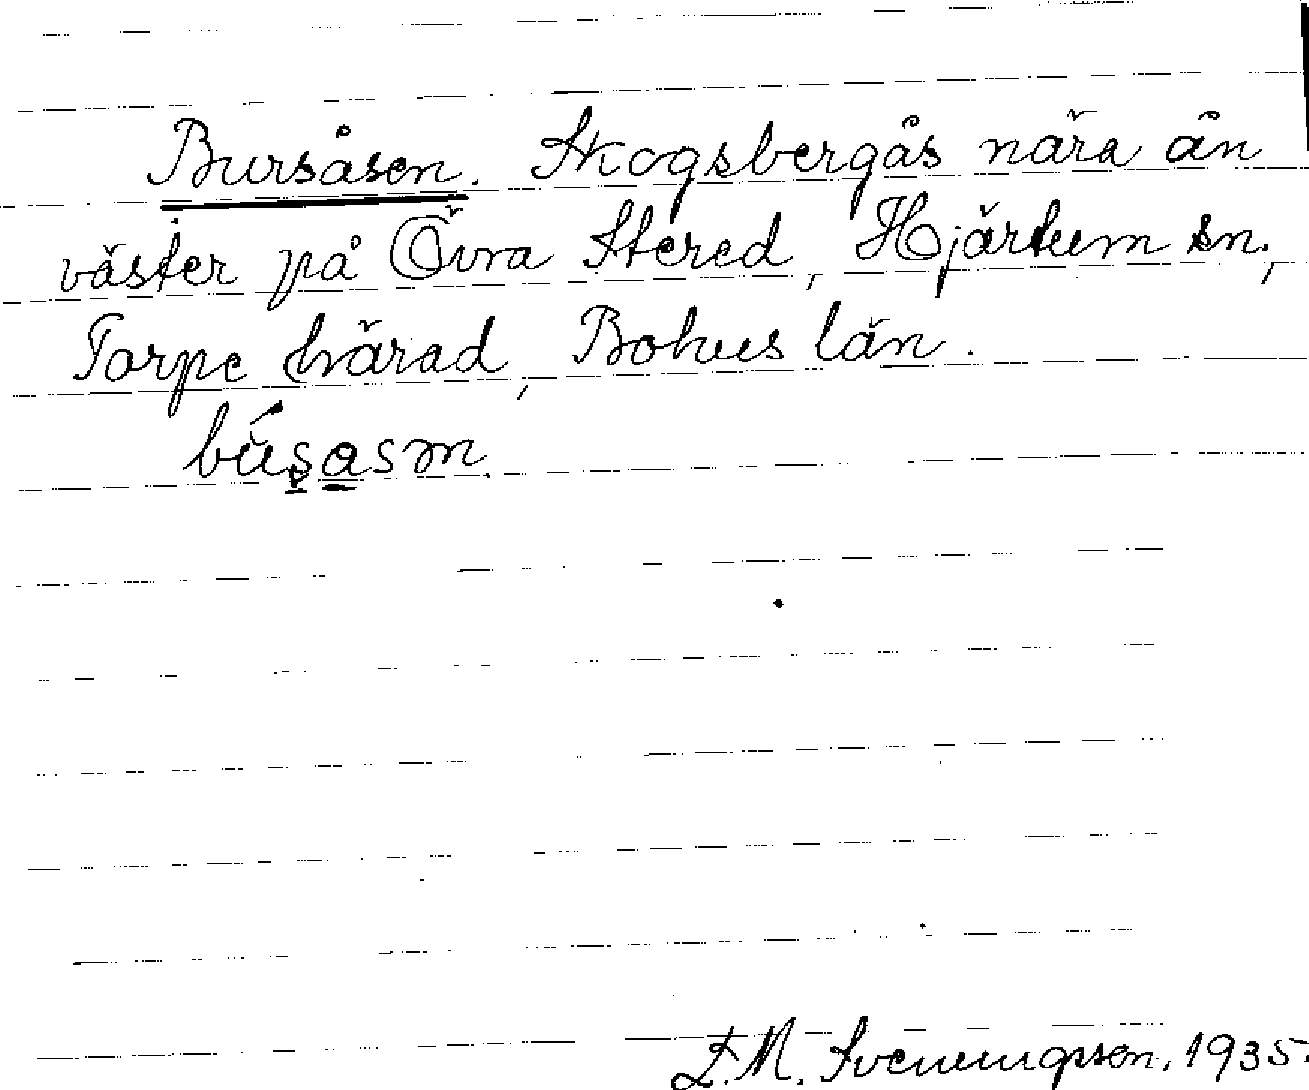 Bursåsen. Skogsbergås nära ån
väster på Övra Stered, Hjärtum sn.,
Torpe härad, Bohus län.
bu̇́s̱a̱sm.
Svenungsson. 1935.